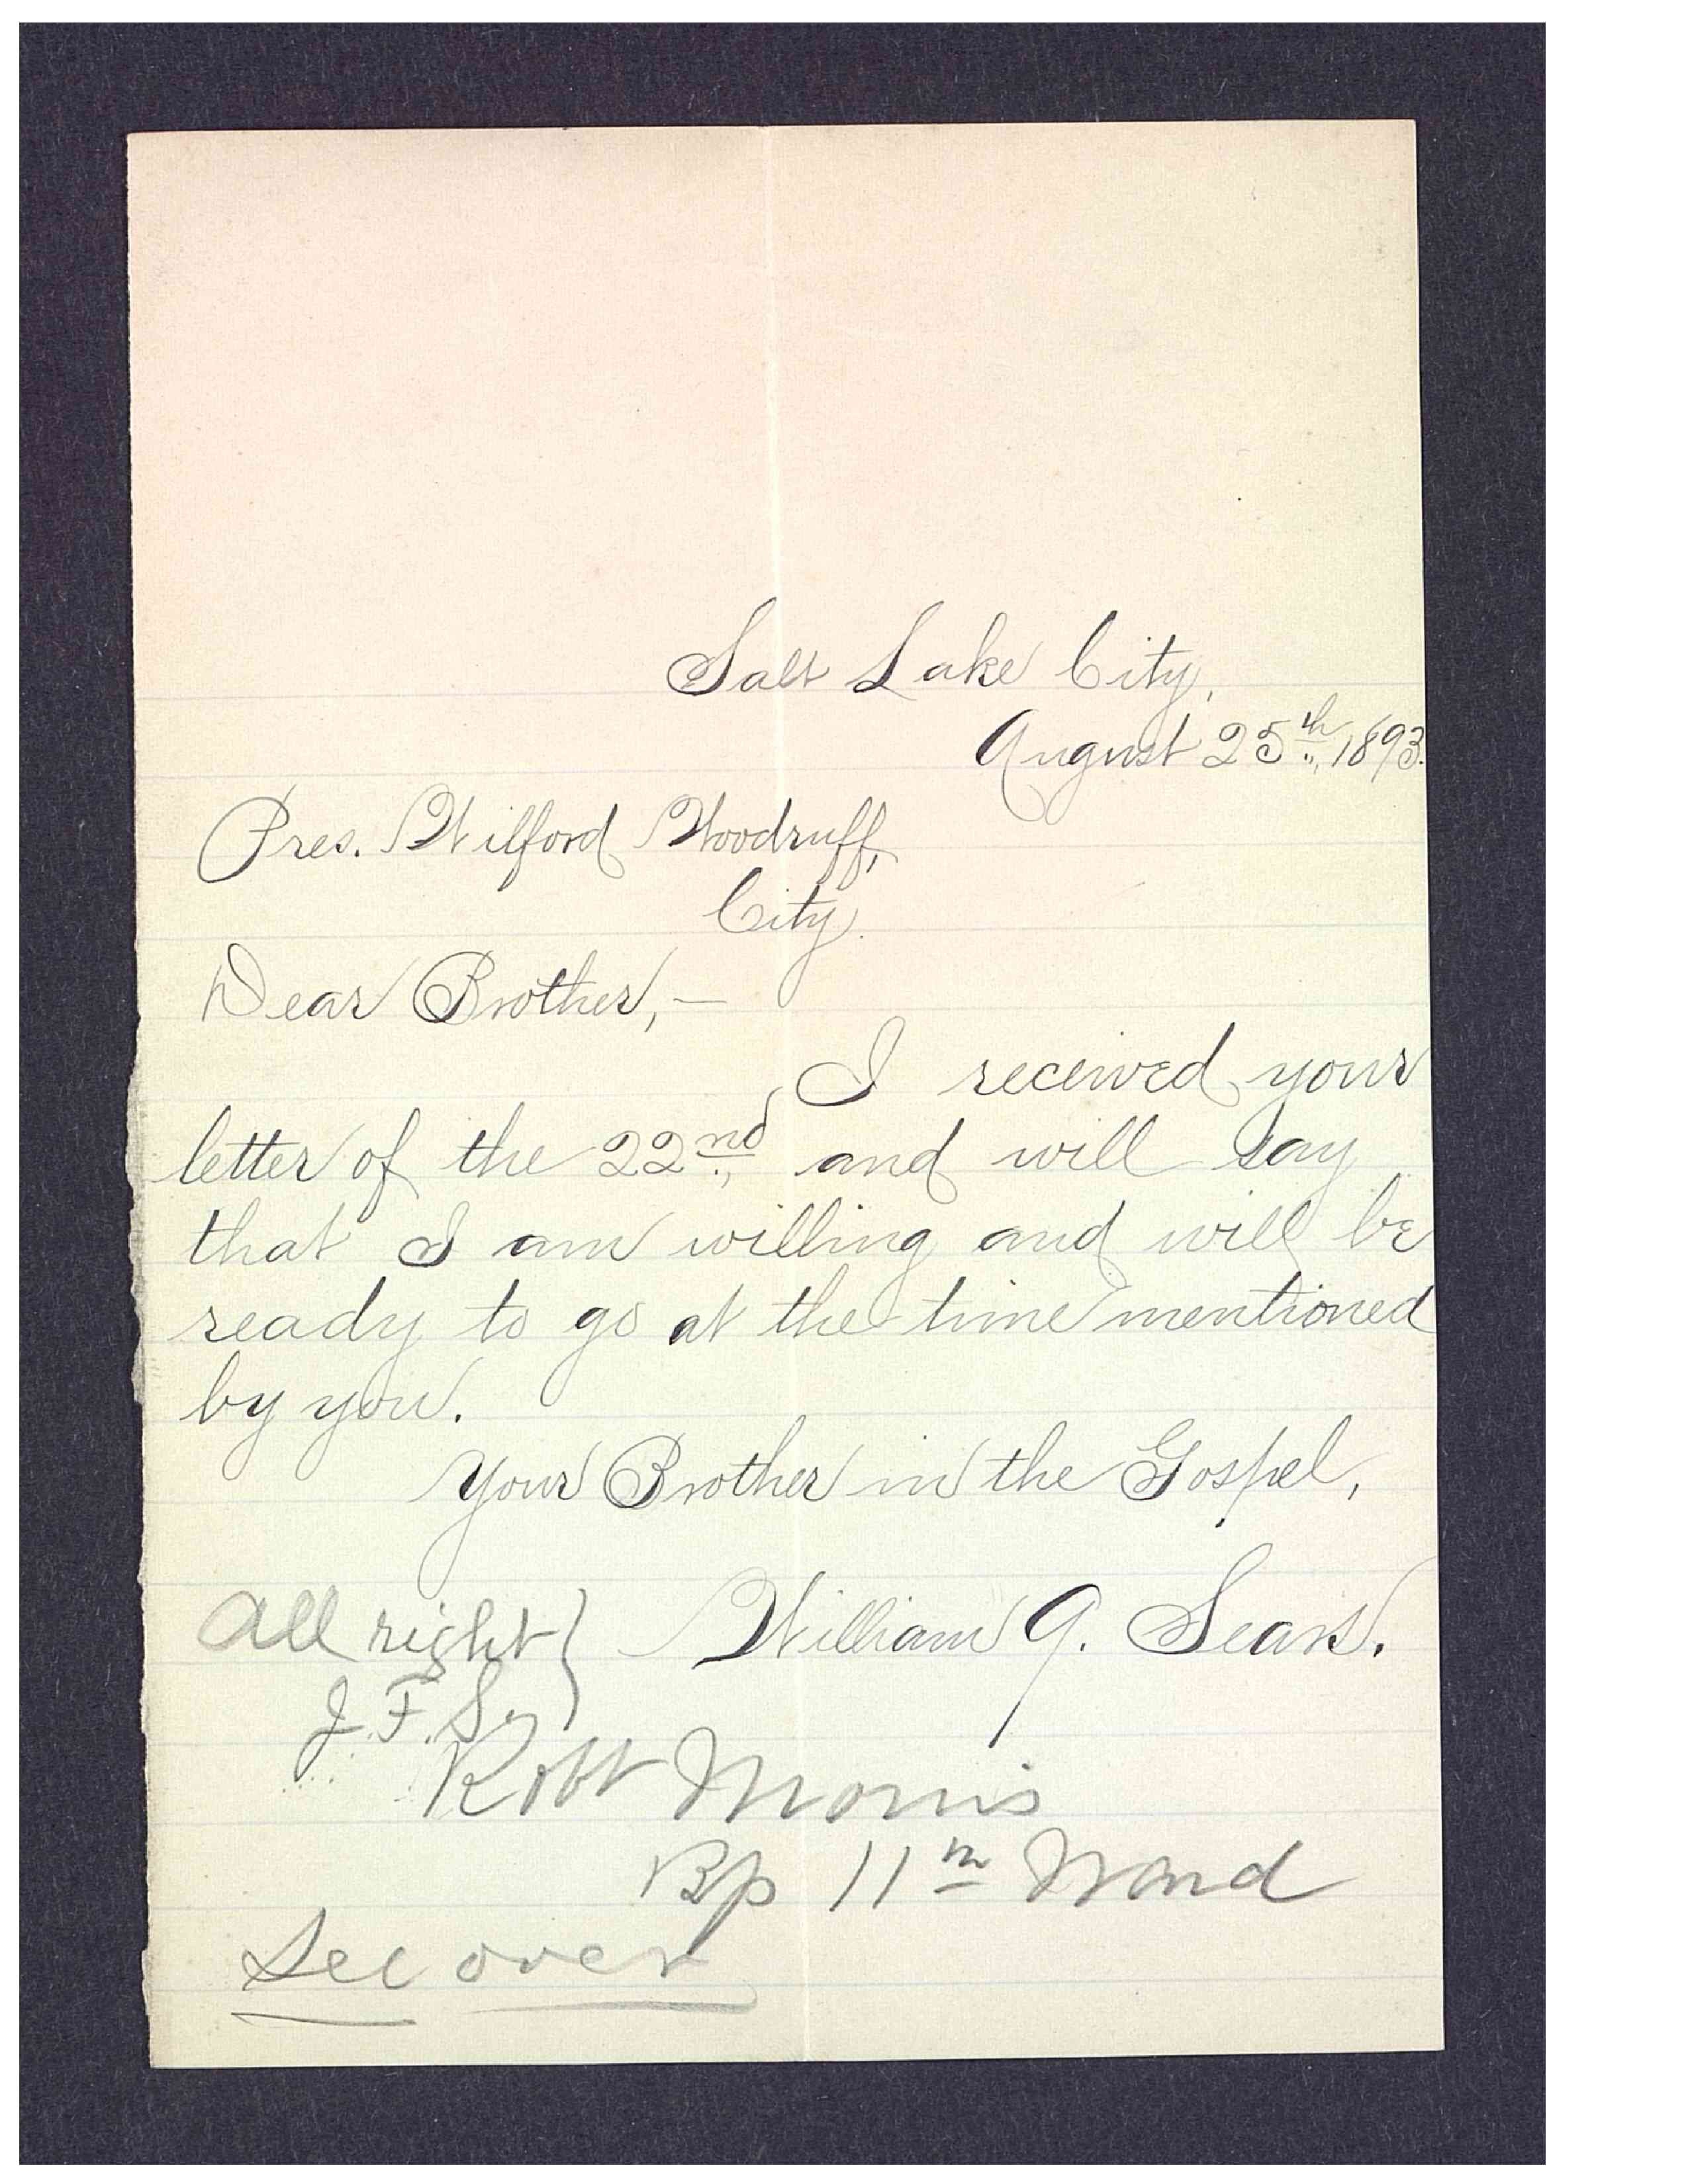 Salt Lake City,
August 25th., 1893.
Pres. Wilford Woodruff,
City.
Dear Brother,—
I received your
letter of the 22nd., and will say
that I am willing and will be
ready to go at the time mentioned
by you.
Your Brother in the Gospel,
William G. Sears.
All right }
J. F. S.
Robt Morris
Bp 11th Ward
See over